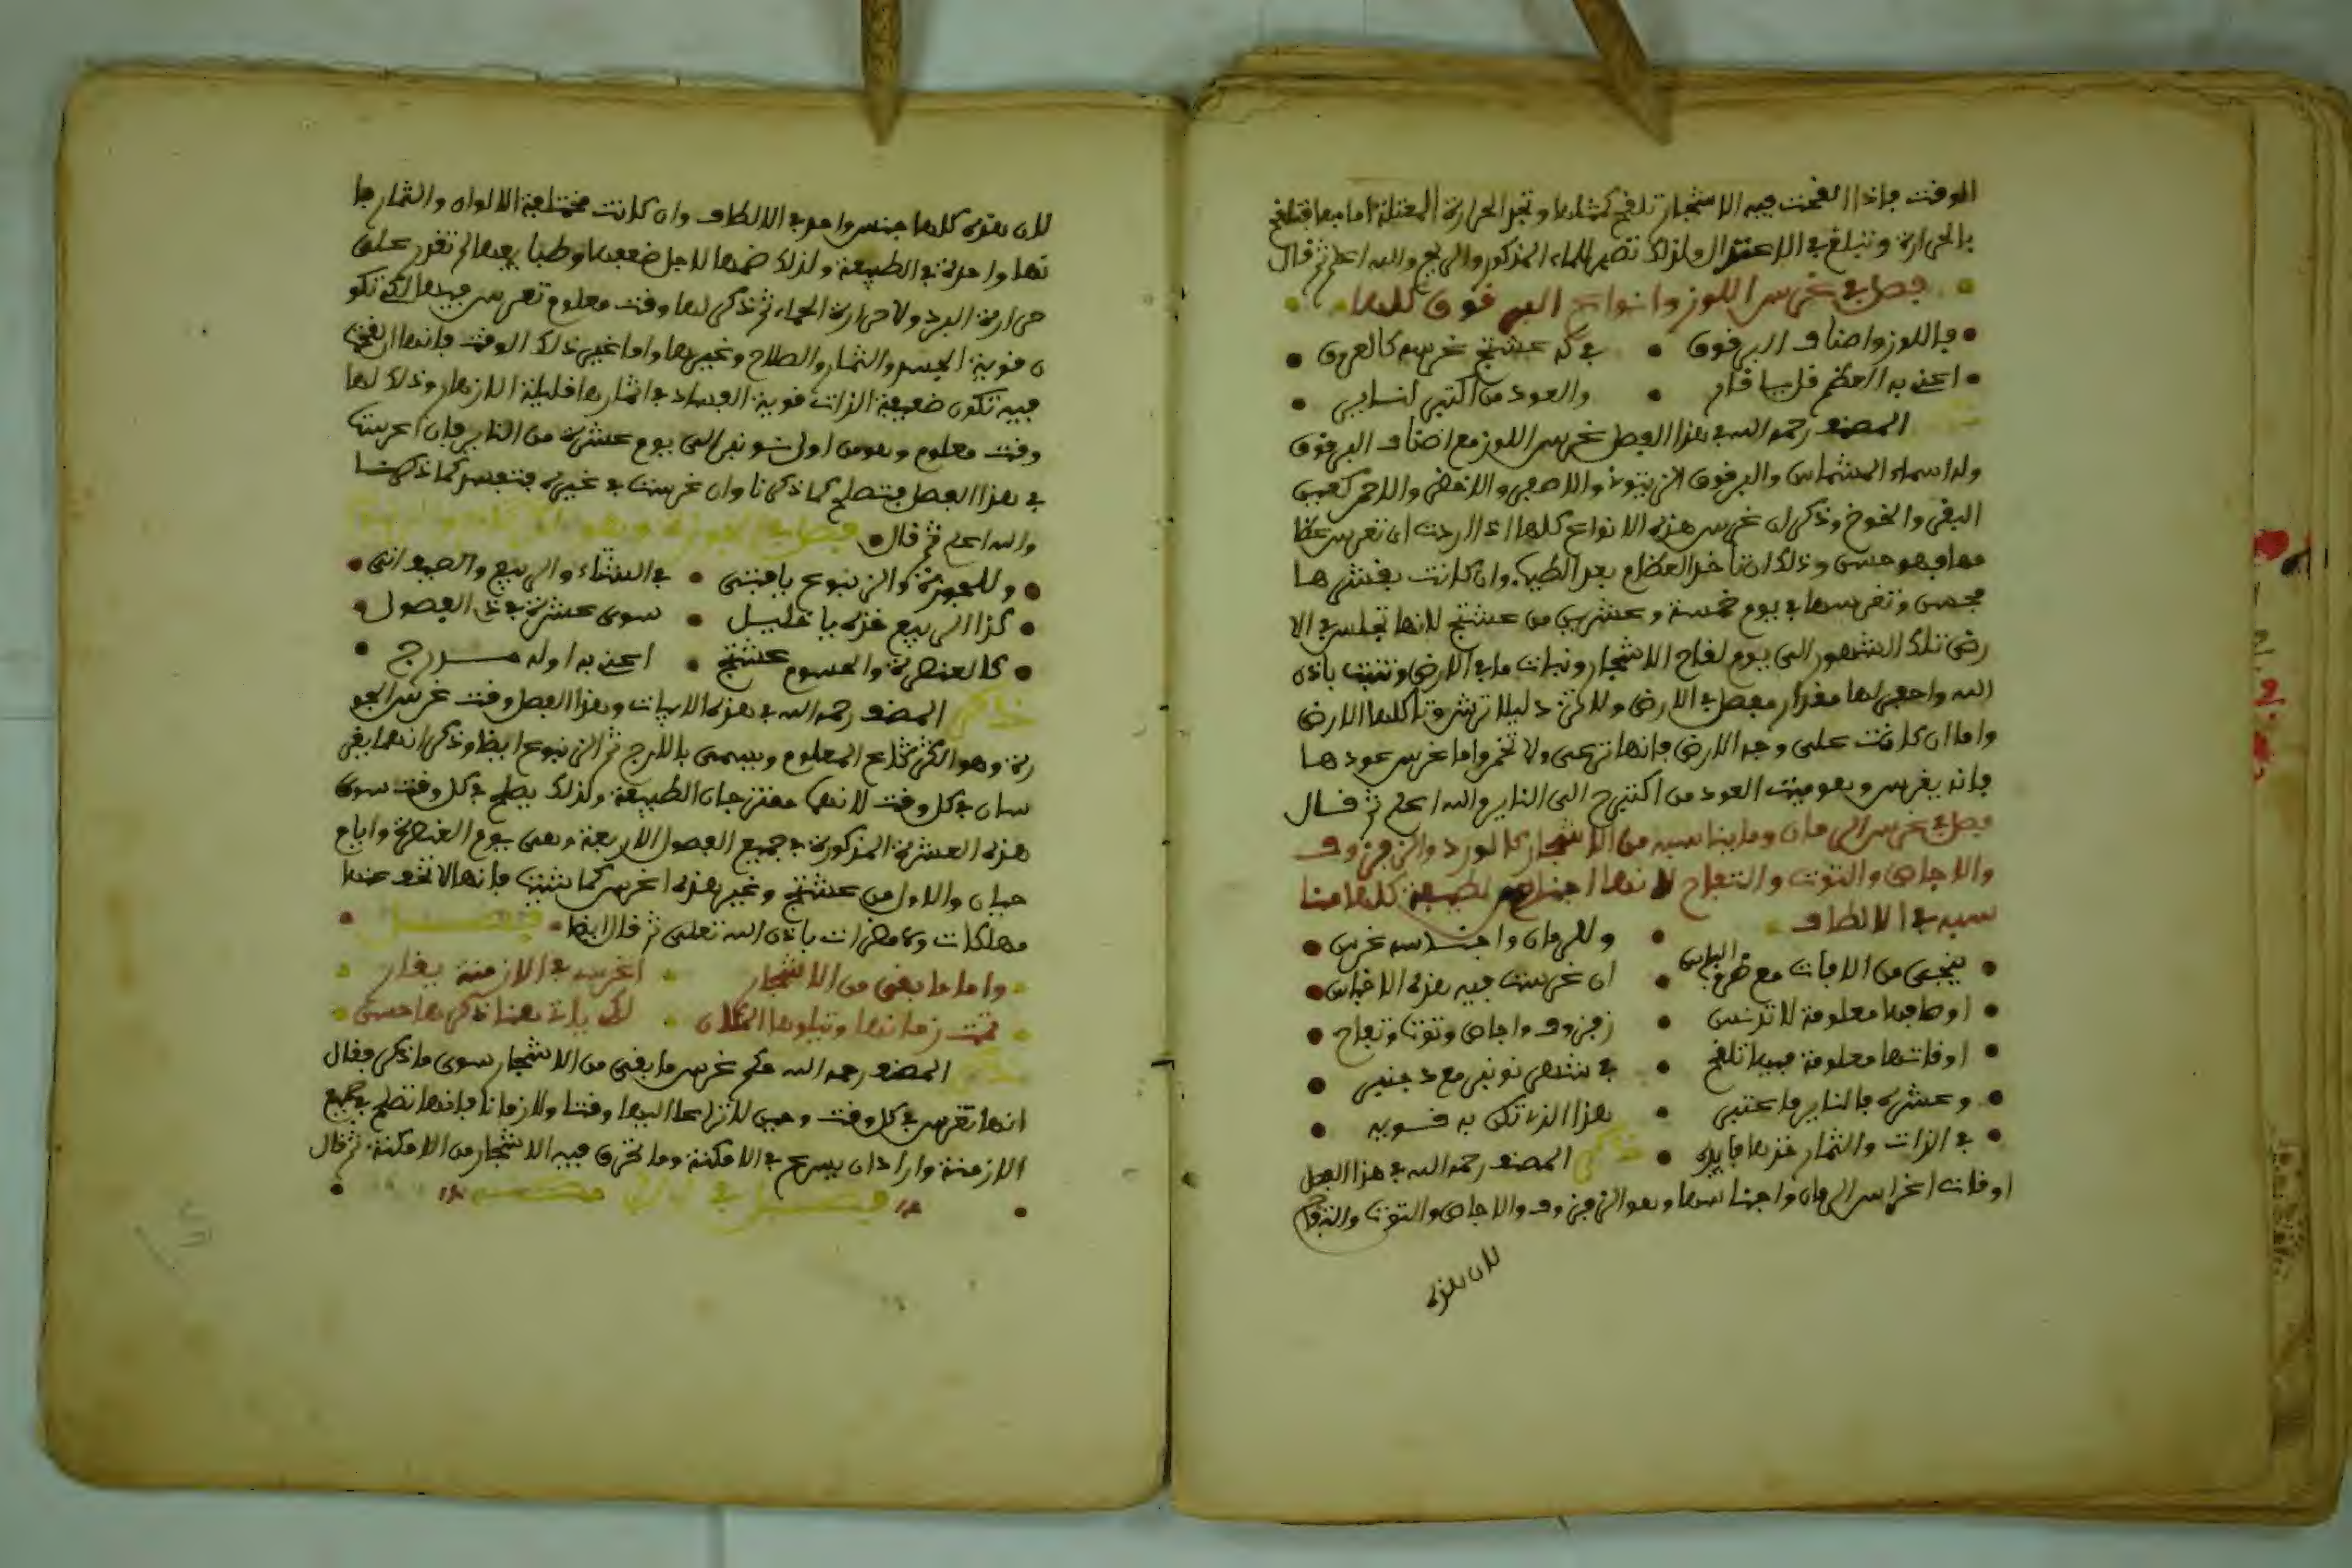 الوقت فإذا القحت فيه الاشجار تلقح كمثلها وتجد الحرارة المعتدلة اما بها فتلقح
بالحرارة وتبلغ في الاعتدال ولذلك تضير للماء المذكور والريح والله اعلم ثم قال
فصل في غرس اللوز وانواع البرقوق كلها
فاللوز واصناف البرقوق • في كه عشتنبر غرسه كالعروق
اعني به العظم قل يا قار • والعود من اكتنبر لنايير
المصنف رحمه الله في هذا الفصل غرس اللوز مع اصناف البرقوق
وله اسماء المشماش والبرقوق الزيتوني والاصفر والاخضر والاحمر كعين
البقر والخوخ وذكر ان غرس هذه الانواع كلها اذا اردت ان تغرس عظا
مها فهو حسن وذلك ان تاخذ العظام بعد الطيب وان كانت بقشرها
فحسن وتغرسها في يوم خمسة وعشرين من عشتنبر لانها تجلس في الا
رض تلك الشهور الى يوم لقاح الاشجار ونبات ما في الارض وتنبت باذن
الله واحفر لها مقدار مفصل في الارض ولا كن دليلا ترشوقا كلها الارض
واما ان كانت على وجه الارض فانها ترعى ولا تخمر واما غرس عودها
فانه يغرس وهو ميت العود من اكتنبر الى الناير والله اعلم ثم قال
فصل في غرس الرمان وما يناسبه من الاشجار كالورد والزفزوف
والاجاص والتوت والتفاح لانها اجناس لطيفة كلها متنا
سبة في الالطاف
وللرمان واجناسه غرس
ينجى من الافات مع ضر الباس • ان غرست فيه هذه الاغراس
اوصافها معلومة لا تدنس • زفزوف واجاص وتوت وتفاح
اوقاتها معلومة فيها تلقح • في شهر نونبر مع دجنبر
وعشرة فالناير فاعتبر • هذا الذي تكن به قوية
في الذات والثمار خذها فايدة • ذكر المصنف رحمه الله في هذا الفصل
اوقات اغراس الرمان واجناسها وهو الزفزوف والاجاص والتوت والتفاح
لان هذه
لان هذه كلها جنس واحد في الالطاف وان كانت مختلفة الالوان والثمار فا
نها واحدة في الطبيعة ولذلك ضمها لاجل ضعفها وطبا يعها لم تقدر على
حرارة البرد ولا حرارة الحماء ثم ذكر لها وقت معلوم تغرس فيها لكي تكو
ن قوية الجسد والثمار والصلاح وغيرها واما غير ذلك الوقت فانها ان لقحت
فيه تكون ضعيفة الذات قوية الفساد في اثمارها قليلة الازهار وذلك لها
وقت معلوم وهو من اول نونبر الى يوم عشرة من الناير فان اغرست
في هذا الفصل فتصلح كما ذكرنا وان غرست في غيره فتفسد كما ذكرنا
والله اعلم ثم قال
وللجوزة والزنبوع يا فتى • في الشتاء والربيع والصيف اتى
كذا الربيع خذه يا خليل • سوى عشرة في ذي الفصول
كالعنصرة والحسوم عشتنبر • اعني به اوله
ذكر المصنف رحمه الله في هذه الابيات وهذا الفصل وقت غرس الجو
زة وهو الكركاع المعلوم ويسمى بالارج ثم الزنبوع ايضا وذكر انهما يغر
سان في كل وقت لانهما ممتزجان الطبيعة ولذلك يصلح في كل وقت سوى
هذه العشرة المذكورة في جميع الفصول الاربعة وهي يوم العنصرة وايام
حيان والاول من عشتنبر وغير هذه اغرس كما شئت فانها لا تخف عنها
مهلكات ولا مضرات باذن الله تعلى ثم قال ايضا • فصل
واما ما بقي من الاشجار • اغرسه في الازمنة يقار
تمت زمانها ويتلوها المكان • لكن يات هنا ذكرها حسن
المصنف رحمه الله حكم غرس ما بقي من الاشجار سوى ما ذكر فقال
انها تغرس في كل وقت وحين لا تراعا اليها وقتا ولا زمانا فانها تصلح في جميع
الازمنة واراد ان يسرع في الامكنة وما تحرق فيه الاشجار من الامكنة ثم قال